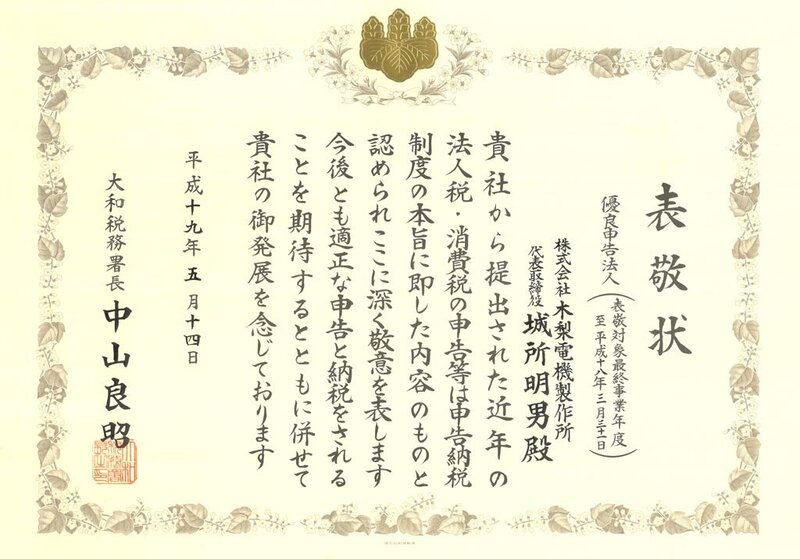 表敬状
優良申告法人
表敬対象最終事業年度
至平成十八年三月三十一日
株式会社木梨電機製作所
代表取締役 城所明男殿
貴社から提出された近年の
法人税・消費税の申告等は申告納税
制度の本旨に即した内容のものと
認められここに深く敬意を表します
今後とも適正な申告と納税をされる
ことを期待するとともに併せて
貴社の御発展を念じております
平成十九年五月十四日
大和税務署長 中山良昭